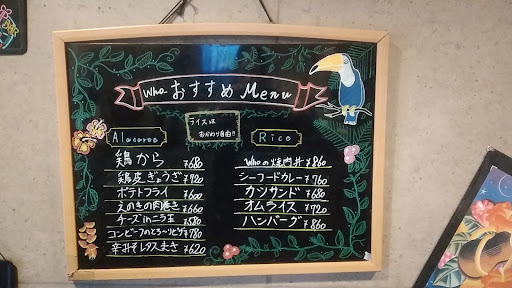 Who おすすめ Menu
ライスは
おかわり自由!!
Alacaroo
鶏から ¥680
鶏皮ぎょうざ ¥720
ポテトフライ ¥600
えのきの肉巻き ¥660
チーズinニラ玉 ¥580
コンビーフのとろ〜りピザ ¥780
辛みそレタスまき ¥620
Rice
Whoの焼肉丼 ¥860
シーフードカレー ¥760
カツサンド ¥680
オムライス ¥720
ハンバーグ ¥860